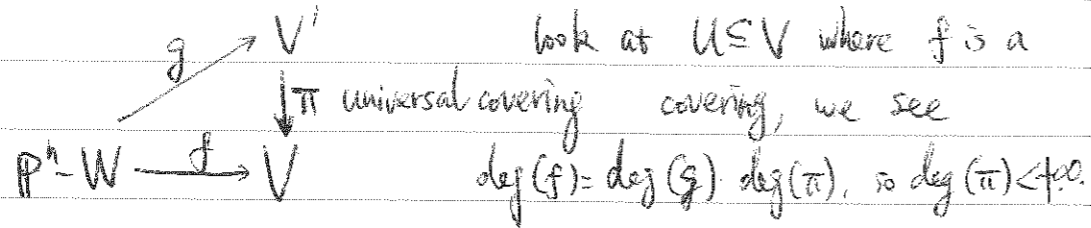 g V' look at U⊆V where f is a
↓π universal covering covering, we see
Pⁿ-W —f→ V deg(f)=deg(g)·deg(π), so deg(π)<+∞.